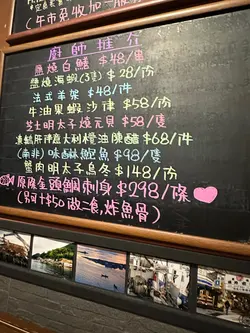 (牛市免收加一服
廚師推介
鹽燒白鱔 $48/串
鹽燒海蝦(3隻) $28/份
法式羊架 $48/件
牛油果蝦沙律 $58/份
芝士明子燒元貝 $58/隻
鵝肝伴意大利檀油陳醋 $68/件
(南非)味醂鮑魚 $98/隻
蟹肉明太子烏冬 $148/份
原隻金頭鯛刺身 $298/條
(另加十$50做二食,炸魚骨)